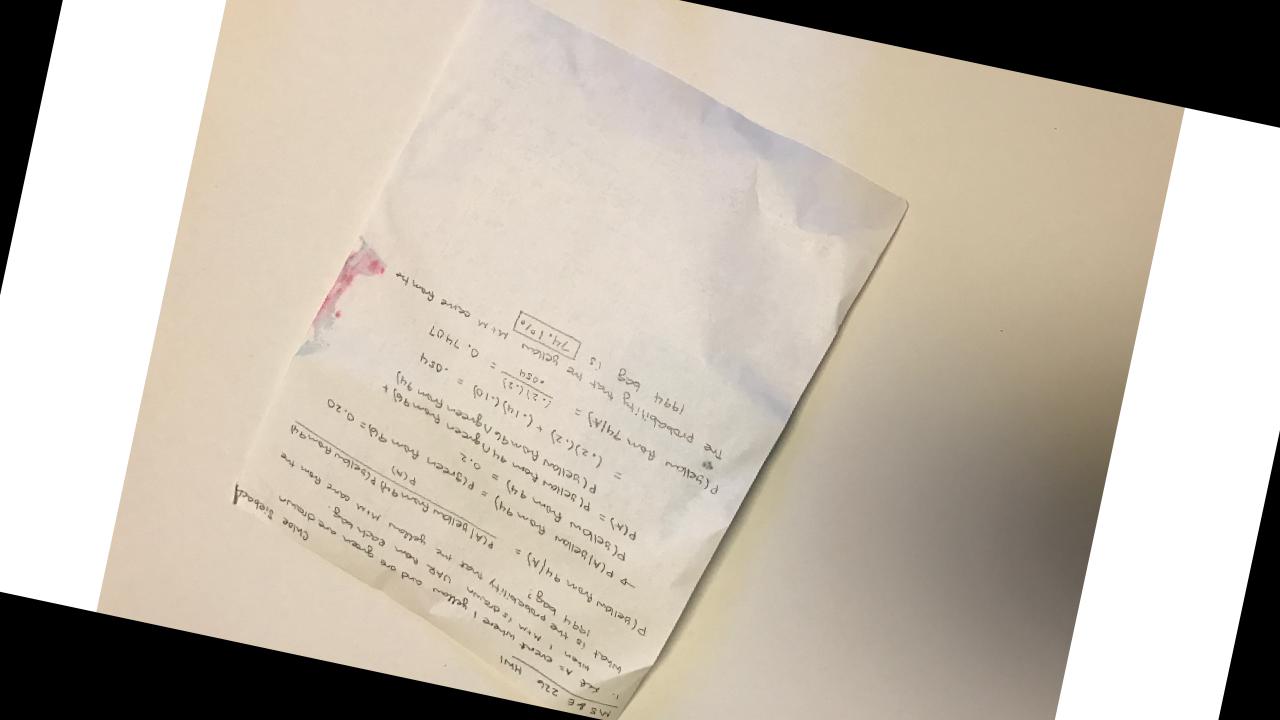 MS&E 226 HW1
Chloe Siebach
1. Let A = event where 1 yellow and one green are drawn
when 1 M+M is drawn UAR from each bag.
What is the probability that the yellow M+M came from the
1994 bag?
P(yellow from 94|A) = P(A|yellow from 94) P(yellow from 94)
P(A)
→ P(A|yellow from 94) = P(green from 96) = 0.20
P(yellow from 94) = 0.2
P(A) = P(yellow from 94 ∩ green from 96) +
P(yellow from 96 ∩ green from 94)
= (.2)(.2) + (.14)(.10) = .054
P(yellow from 94|A) = (.2)(.2) = 0.7407
.054
The probability that the yellow M+M came from the
1994 bag is 74.1%